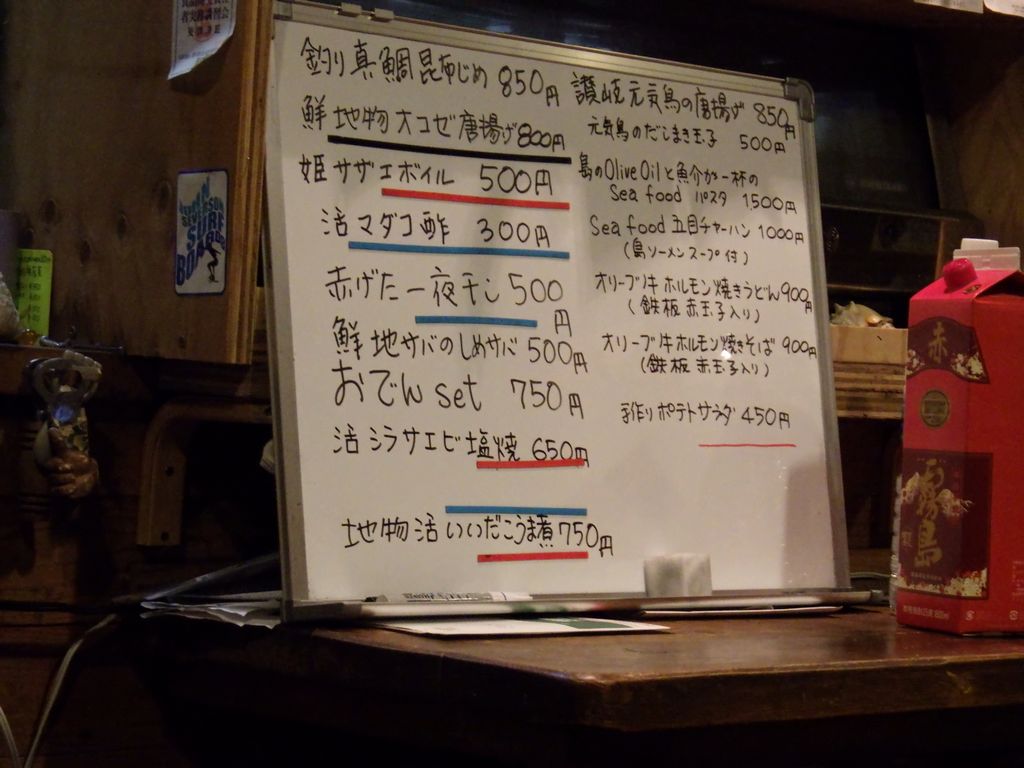 釣り真鯛昆布じめ 850円
鮮 地物オコゼ唐揚げ800円
姫サザエボイル 500円
活マダコ酢 300円
赤げた一夜干し 500円
鮮 地サバのしめサバ 500円
おでん set 750円
活シラサエビ塩焼 650円
地物活いいだこうま煮750円
讃岐元気鳥の唐揚げ 850円
元気鳥のだしまき玉子 500円
島のOlive Oilと魚介が一杯の
Sea food パスタ 1500円
Sea food 五目チャーハン 1000円
(島ソーメンスープ付)
オリーブ牛ホルモン焼きうどん900円
(鉄板 赤玉子入り)
オリーブ牛ホルモン焼きそば 900円
(鉄板 赤玉子入り)
手作りポテトサラダ 450円
SURF
BOARDS
赤
霧島